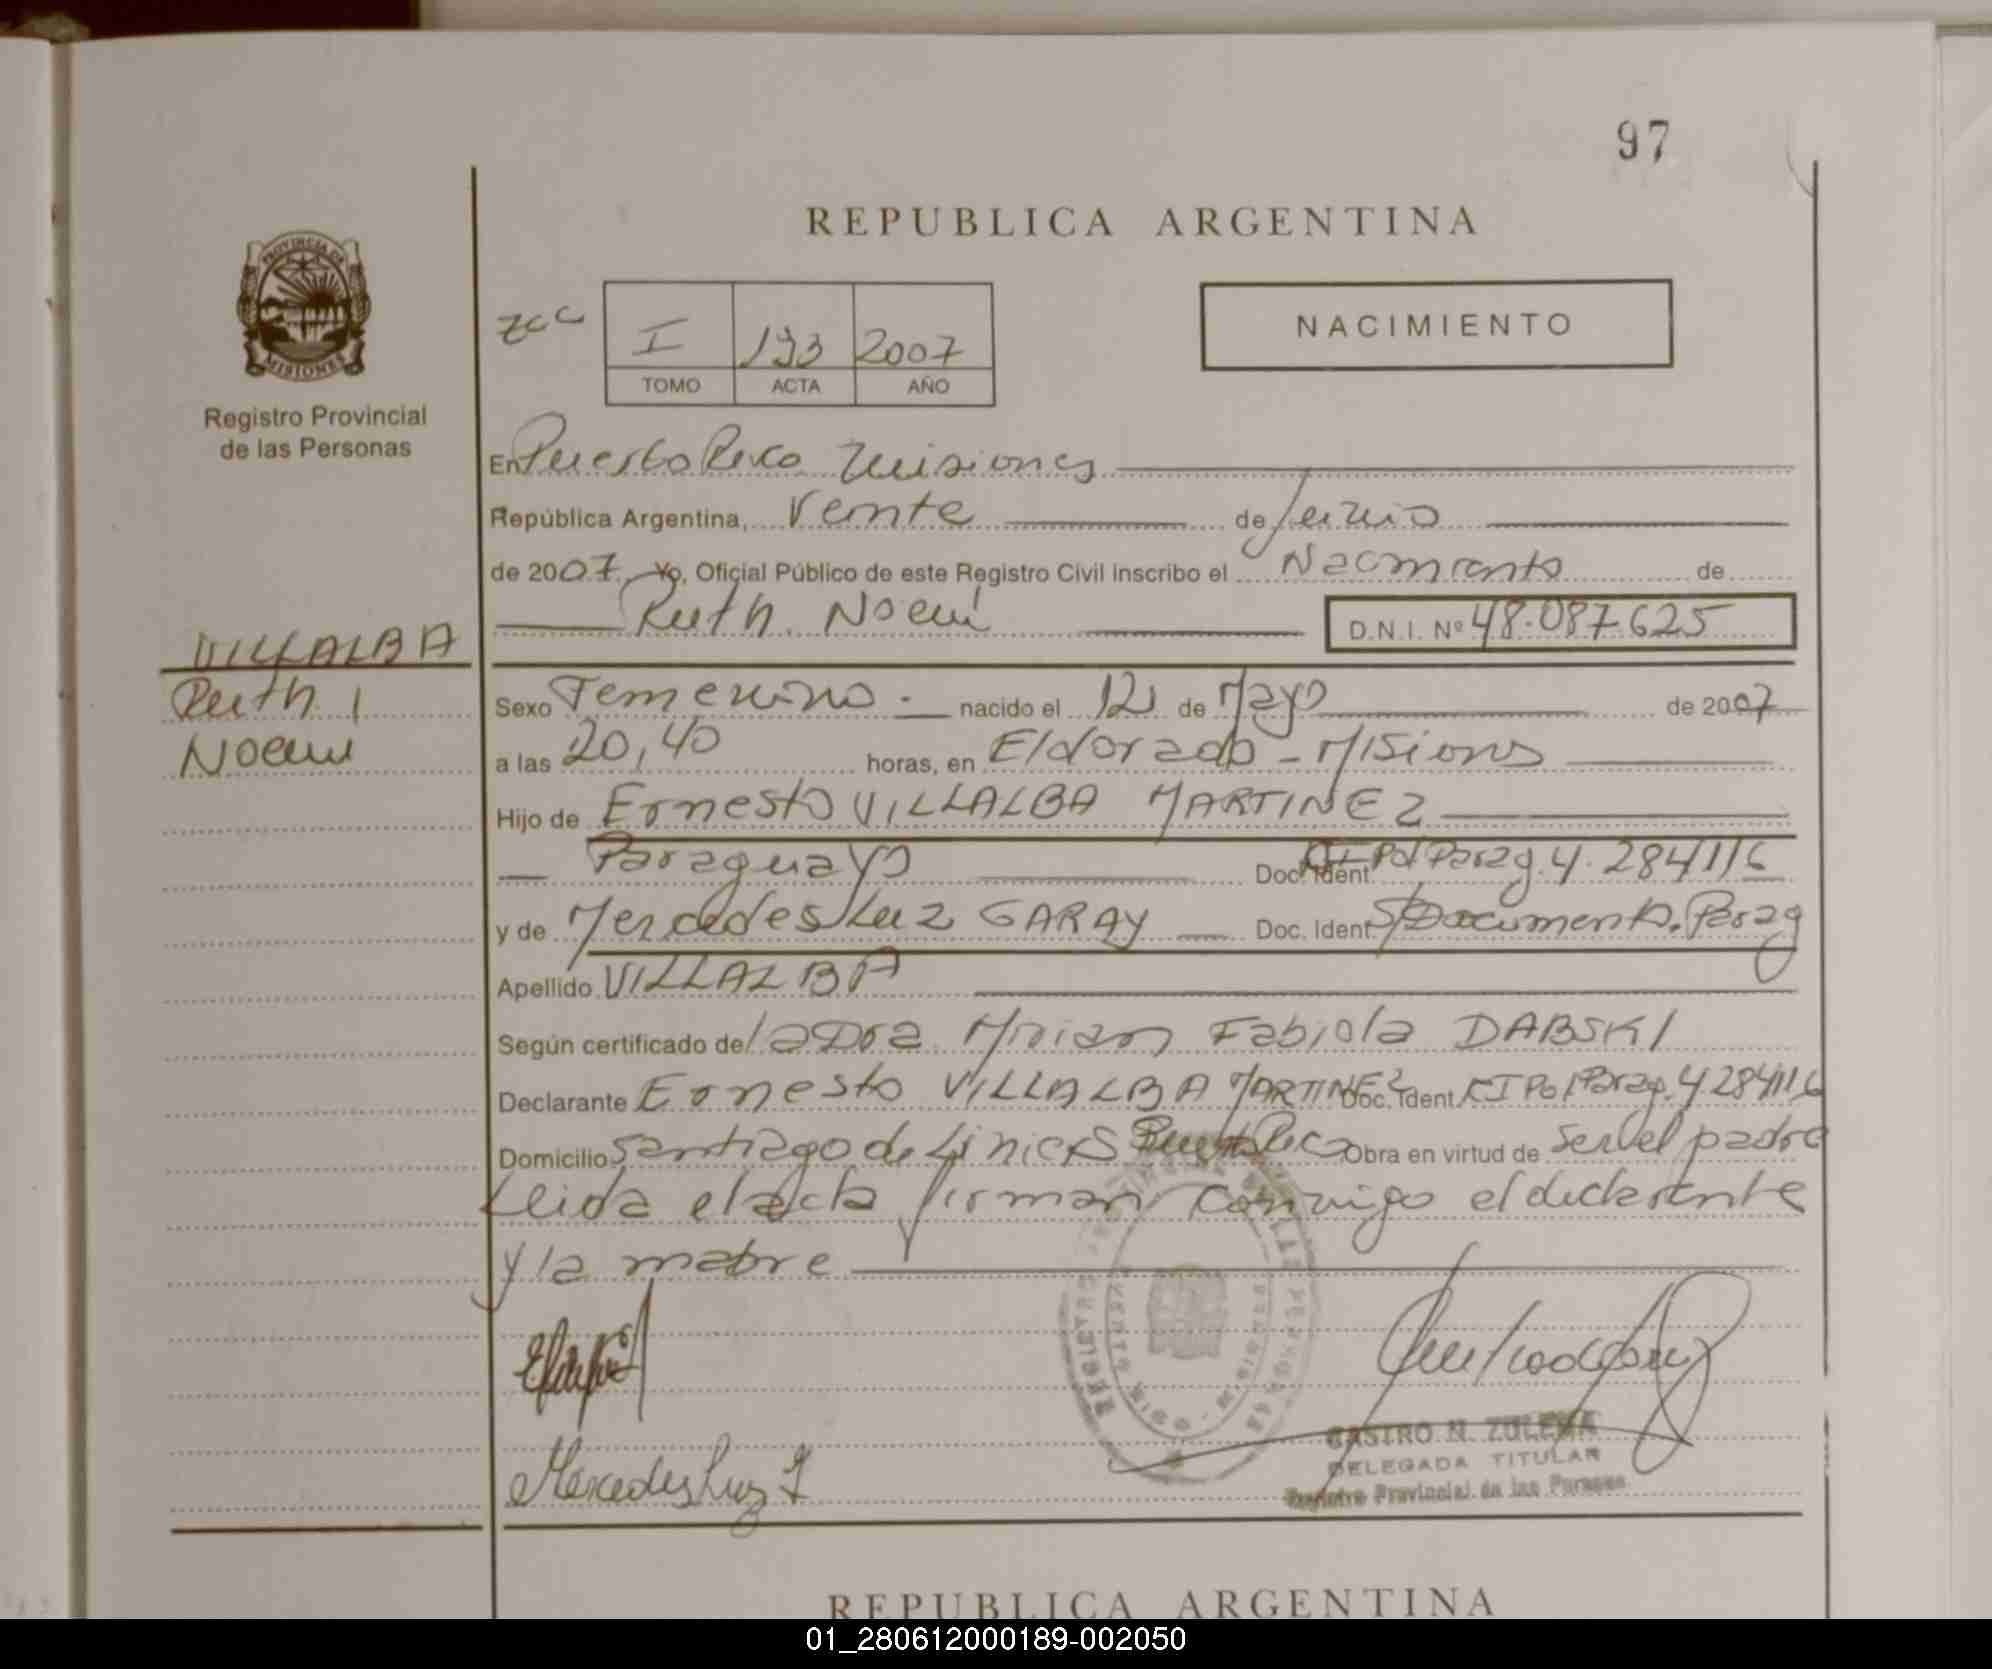 97
REPUBLICA ARGENTINA
PROVINCIA DE
MISIONES
Registro Provincial
de las Personas
zcc
I 193 2007
TOMO ACTA AÑO
NACIMIENTO
En Puerto Rico Misiones
República Argentina, Veinte de Junio
de 2007 Yo, Oficial Público de este Registro Civil inscribo el Nacimiento de
Ruth Noemi D.N.I. Nº 48.087.625
VILLALBA
Ruth
Noemi
Sexo Femenino.- nacido el 12 de Mayo de 2007
a las 20,40 horas, en Eldorado - Misiones
Hijo de Ernesto VILLALBA MARTINEZ
Paraguayo Doc. Ident CI Pol Parag. 4.284116
y de Mercedes Luz GARAY Doc. Ident S/Documento. Parag
Apellido VILLALBA
Según certificado de la Dra Mirian Fabiola DABSKI
Declarante Ernesto VILLALBA MARTINEZ Doc. Ident CI Pol Parag. 4284116
Domicilio Santiago de Liniers Puerto Rico Obra en virtud de ser el padre
Leida el acta firman conmigo el declarante
y la madre
Mercedes Luz G
CASTRO N. ZULEMA
DELEGADA TITULAR
Registro Provincial de las Personas
REPUBLICA ARGENTINA
01_280612000189-002050